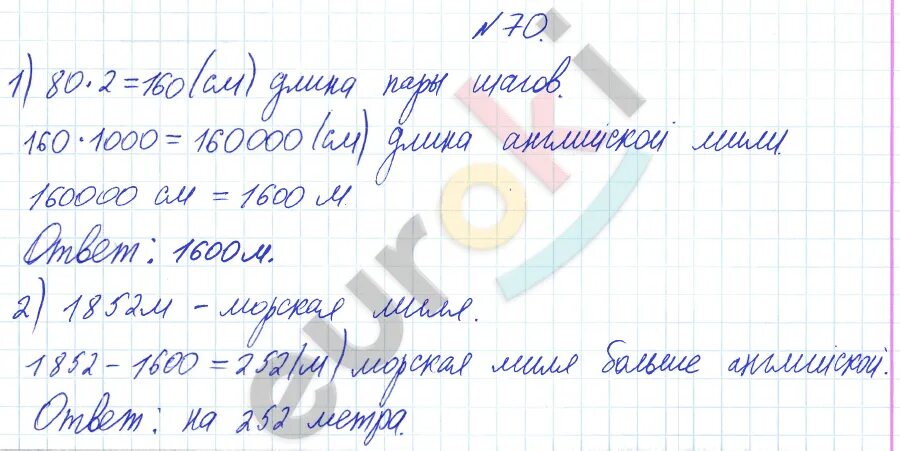 №70.
1) 80·2=160(см) длина пары шагов.
160·1000=160000(см) длина английской мили.
160000 см = 1600 м
Ответ: 1600м.
2) 1852м - морская миля.
1852-1600=252(м) морская миля больше английской.
Ответ: на 252 метра.
euroki